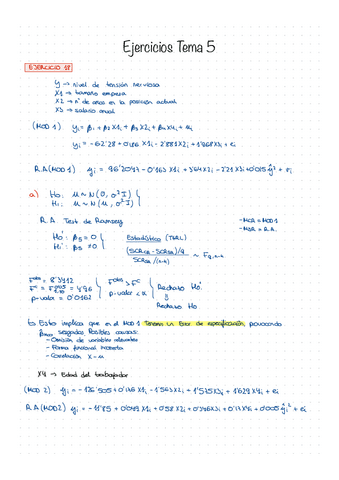 Ejercicios Tema 5
EJERCICIO 18
Y → nivel de tensión nerviosa
X1 → tamaño empresa
X2 → nº de años en la posición actual
X3 → salario anual
(MOD 1) yi = β1 + β2 X1i + β3 X2i + β4 X3i + ui
yi = -62'28 + X1i - 2'881 X2i + X3i + ei
R.A (MOD 1) yi = - 0'163 X1i + X2i - X3i + 0'015 ŷ² + ei
a) Ho: u ~ N (0, σ² I)
H1: u ~ N (μ, σ² I)
R.A. Test de Ramsey
Ho': β5 = 0
H1': β5 ≠ 0
Estadístico (TRRL)
(SCRCR - SCRSR)/q
SCRSR/(n-k)
~ Fq, n-k
- MCR = MOD 1
- MSR = R.A.
F obs = 8'3912
F c = 4'96
p-valor = 0'0162
F obs > Fc
p-valor < α
Rechazo Ho'
⇓
Rechazo Ho
↳ Esto implica que en el MOD 1 tenemos un Error de especificación, provocando
sesgados posibles causas:
- Omisión de variables relevantes
- Forma funcional incorrecta
- Correlación X - u
X4 → Edad del trabajador
(MOD 2) yi = - 126'505 + 0'176 X1i - 1'563 X2i + 1'575 X3i + 1'629 X4i + ei
R.A (MOD 2) yi = - 11'85 + 0'049 X1i + 0'58 X2i + X3i + X4i + 0'005 ŷi² + ei